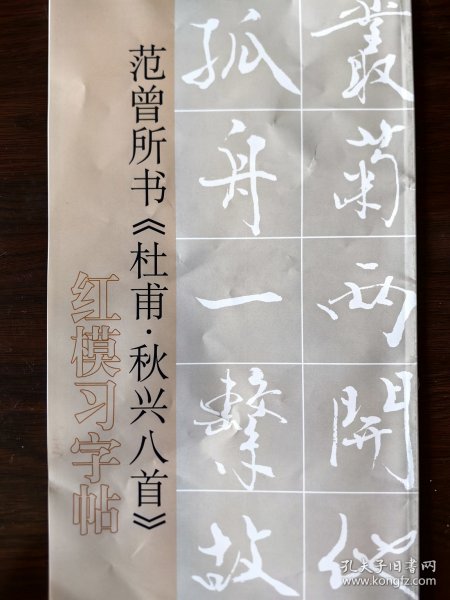 叢菊両開他
孤舟一繫故
范曾所书《杜甫·秋兴八首》
红模习字帖
孔夫子旧书网
www.kongfz.com